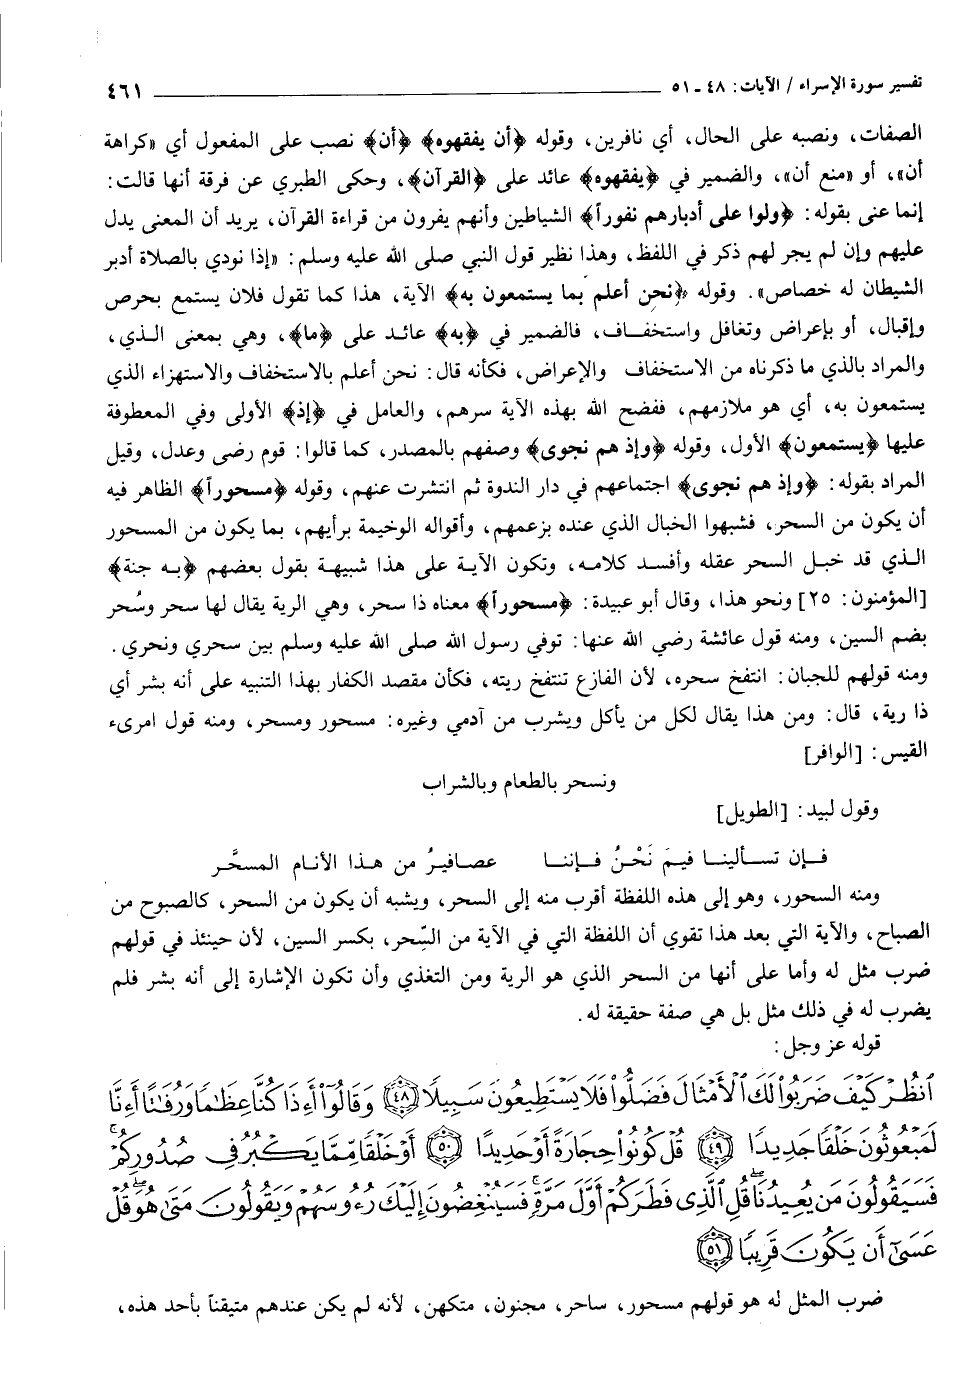 تفسير سورة الإسراء / الآيات: ٤٨ ـ ٥١ ٤٦١
الصفات، ونصبه على الحال، أي نافرين، وقوله ﴿أن يفقهوه﴾ ﴿أن﴾ نصب على المفعول أي «كراهة
أن»، أو «منع أن»، والضمير في ﴿يفقهوه﴾ عائد على ﴿القرآن﴾، وحكى الطبري عن فرقة أنها قالت:
إنما عنى بقوله: ﴿ولوا على أدبارهم نفوراً﴾ الشياطين وأنهم يفرون من قراءة القرآن، يريد أن المعنى يدل
عليهم وإن لم يجر لهم ذكر في اللفظ، وهذا نظير قول النبي صلى الله عليه وسلم: «إذا نودي بالصلاة أدبر
الشيطان له خصاص». وقوله ﴿نحن أعلم بما يستمعون به﴾ الآية، هذا كما تقول فلان يستمع بحرص
وإقبال، أو بإعراض وتغافل واستخفاف، فالضمير في ﴿به﴾ عائد على ﴿ما﴾، وهي بمعنى الذي،
والمراد بالذي ما ذكرناه من الاستخفاف والإعراض، فكأنه قال: نحن أعلم بالاستخفاف والاستهزاء الذي
يستمعون به، أي هو ملازمهم، ففضح الله بهذه الآية سرهم، والعامل في ﴿إذ﴾ الأولى وفي المعطوفة
عليها ﴿يستمعون﴾ الأول، وقوله ﴿وإذ هم نجوى﴾ وصفهم بالمصدر، كما قالوا: قوم رضى وعدل، وقيل
المراد بقوله: ﴿وإذ هم نجوى﴾ اجتماعهم في دار الندوة ثم انتشرت عنهم، وقوله ﴿مسحوراً﴾ الظاهر فيه
أن يكون من السحر، فشبهوا الخبال الذي عنده بزعمهم، وأقواله الوخيمة برأيهم، بما يكون من المسحور
الذي قد خبل السحر عقله وأفسد كلامه، وتكون الآية على هذا شبيهة بقول بعضهم ﴿به جنة﴾
[المؤمنون: ٢٥] ونحو هذا، وقال أبو عبيدة: ﴿مسحوراً﴾ معناه ذا سحر، وهي الرية يقال لها سحر وسُحر
بضم السين، ومنه قول عائشة رضي الله عنها: توفي رسول الله صلى الله عليه وسلم بين سحري ونحري.
ومنه قولهم للجبان: انتفخ سحره، لأن الفازع تنتفخ ريته، فكأن مقصد الكفار بهذا التنبيه على أنه بشر أي
ذا رية، قال: ومن هذا يقال لكل من يأكل ويشرب من آدمي وغيره: مسحور ومسحر، ومنه قول امرىء
القيس: [الوافر]
ونسحر بالطعام وبالشراب
وقول لبيد: [الطويل]
فإن تسألينا فيمَ نَحْنُ فإننا عصافيرُ من هذا الأنام المسحَّر
ومنه السحور، وهو إلى هذه اللفظة أقرب منه إلى السحر، ويشبه أن يكون من السحر، كالصبوح من
الصباح، والآية التي بعد هذا تقوي أن اللفظة التي في الآية من السِّحر، بكسر السين، لأن حينئذ في قولهم
ضرب مثل له وأما على أنها من السحر الذي هو الرية ومن التغذي وأن تكون الإشارة إلى أنه بشر فلم
يضرب له في ذلك مثل بل هي صفة حقيقة له.
قوله عز وجل:
ٱنظُرْ كَيْفَ ضَرَبُوا۟ لَكَ ٱلْأَمْثَالَ فَضَلُّوا۟ فَلَا يَسْتَطِيعُونَ سَبِيلًا ﴿٤٨﴾ وَقَالُوٓا۟ أَءِذَا كُنَّا عِظَٰمًا وَرُفَٰتًا أَءِنَّا
لَمَبْعُوثُونَ خَلْقًا جَدِيدًا ﴿٤٩﴾ قُلْ كُونُوا۟ حِجَارَةً أَوْ حَدِيدًا ﴿٥٠﴾ أَوْ خَلْقًا مِّمَّا يَكْبُرُ فِى صُدُورِكُمْ ۚ
فَسَيَقُولُونَ مَن يُعِيدُنَا ۖ قُلِ ٱلَّذِى فَطَرَكُمْ أَوَّلَ مَرَّةٍ ۚ فَسَيُنْغِضُونَ إِلَيْكَ رُءُوسَهُمْ وَيَقُولُونَ مَتَىٰ هُوَ ۖ قُلْ
عَسَىٰٓ أَن يَكُونَ قَرِيبًا ﴿٥١﴾
ضرب المثل له هو قولهم مسحور، ساحر، مجنون، متكهن، لأنه لم يكن عندهم متيقناً بأحد هذه،